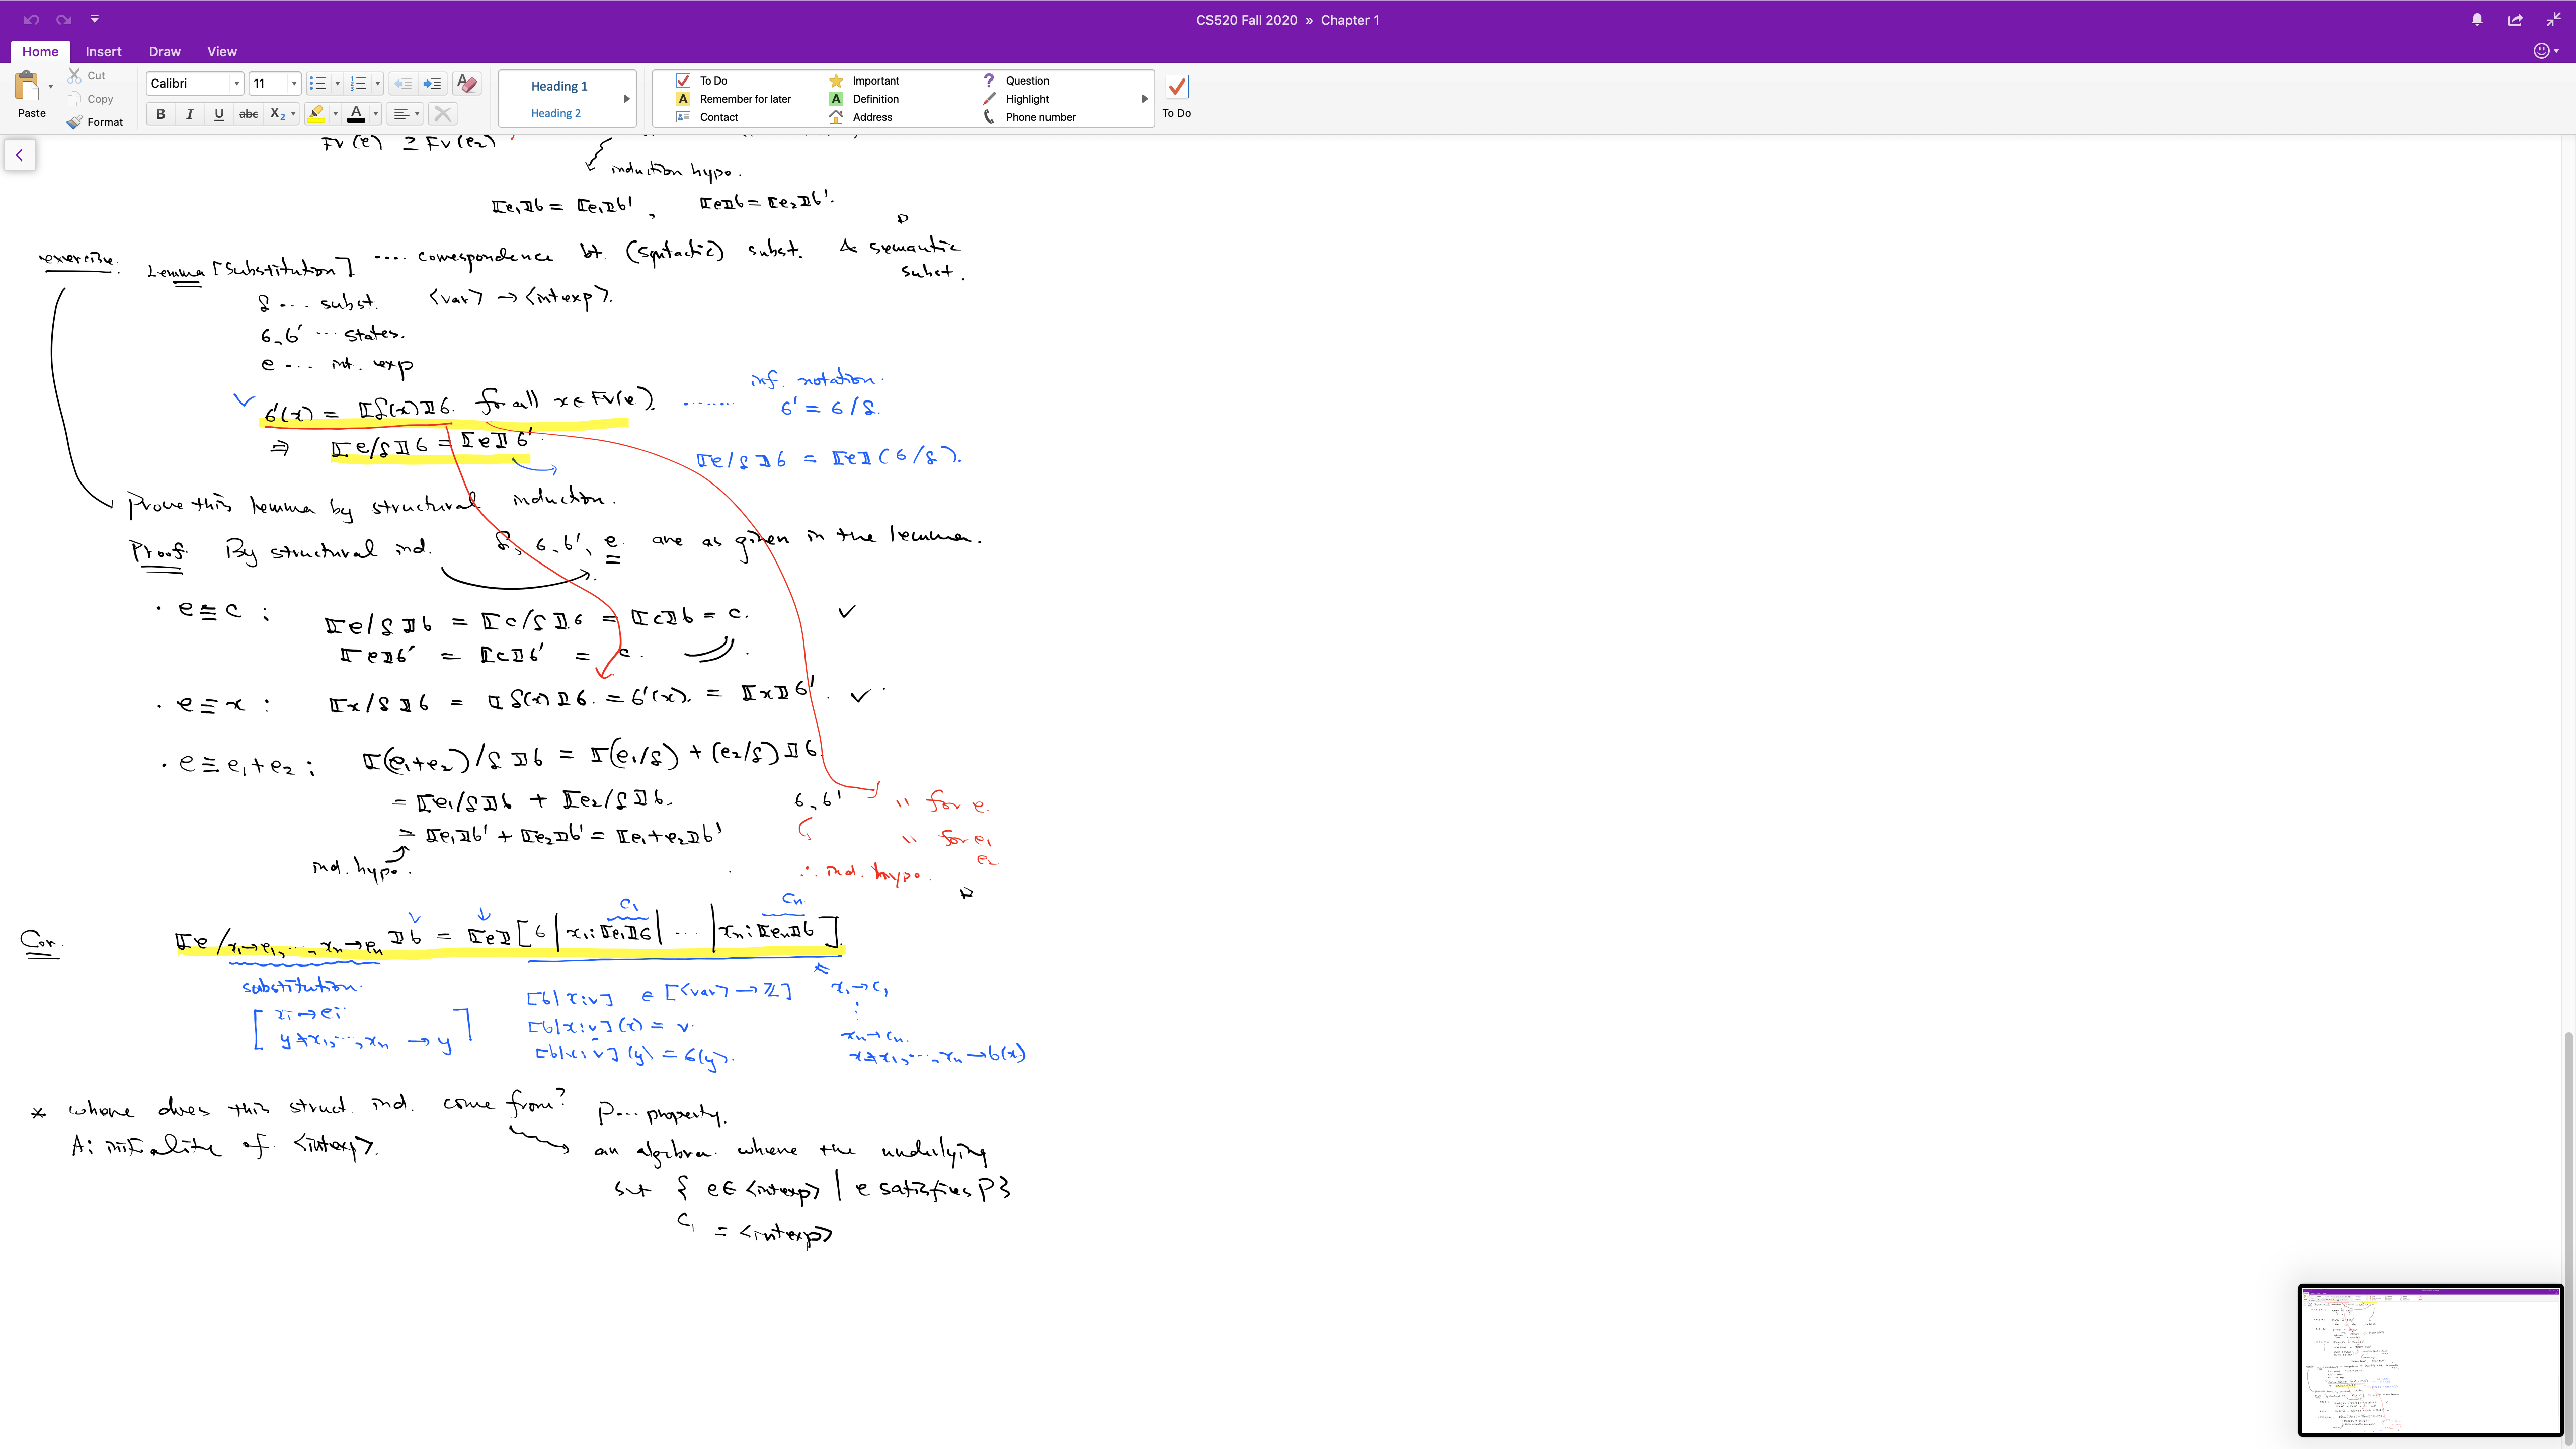 CS520 Fall 2020 » Chapter 1
Home Insert Draw View
Paste Cut Copy Format
Calibri 11
B I U abc X₂ A
Heading 1
Heading 2
To Do Important Question
Remember for later Definition Highlight
Contact Address Phone number
To Do
Fv(e) ⊇ Fv(e₂)
induction hypo.
⟦e₁⟧σ = ⟦e₁⟧σ' , ⟦e⟧σ = ⟦e₂⟧σ'.
exercise. Lemma [Substitution] .... correspondence bt. (syntactic) subst. & semantic subst.
δ ... subst. <var> → <intexp>.
σ, σ' ... states.
e ... int. exp
σ'(x) = ⟦δ(x)⟧σ. for all x ∈ Fv(e). ........ inf. notation. σ' = σ/δ.
⇒ ⟦e/δ⟧σ = ⟦e⟧σ'. ⟦e/δ⟧σ = ⟦e⟧(σ/δ).
Prove this lemma by structural induction.
Proof. By structural ind. δ, σ, σ', e are as given in the lemma.
· e ≡ c : ⟦e/δ⟧σ = ⟦c/δ⟧σ = ⟦c⟧σ = c. ✓
⟦e⟧σ' = ⟦c⟧σ' = c.
· e ≡ x : ⟦x/δ⟧σ = ⟦δ(x)⟧σ. = σ'(x). = ⟦x⟧σ'. ✓
· e ≡ e₁+e₂ : ⟦(e₁+e₂)/δ⟧σ = ⟦(e₁/δ) + (e₂/δ)⟧σ
= ⟦e₁/δ⟧σ + ⟦e₂/δ⟧σ. σ, σ' " for e.
= ⟦e₁⟧σ' + ⟦e₂⟧σ' = ⟦e₁+e₂⟧σ' " for e₁ e₂
ind. hypo. ∴ ind. hypo.
c₁ cₙ
Cor. ⟦e/x₁→e₁, ..., xₙ→eₙ⟧σ = ⟦e⟧[σ | x₁: ⟦e₁⟧σ | ... | xₙ: ⟦eₙ⟧σ].
substitution. [σ|x:v] ∈ [<var> → ℤ] x₁→c₁
xᵢ → eᵢ [σ|x:v](x) = v. ⋮
y ≠ x₁, ..., xₙ → y [σ|x:v](y) = σ(y). xₙ→cₙ.
x ≠ x₁, ..., xₙ → σ(x)
* where does this struct. ind. come from? P... property.
A: initiality of <intexp>. an algebra where the underlying
set { e ∈ <intexp> | e satisfies P }
= <intexp>